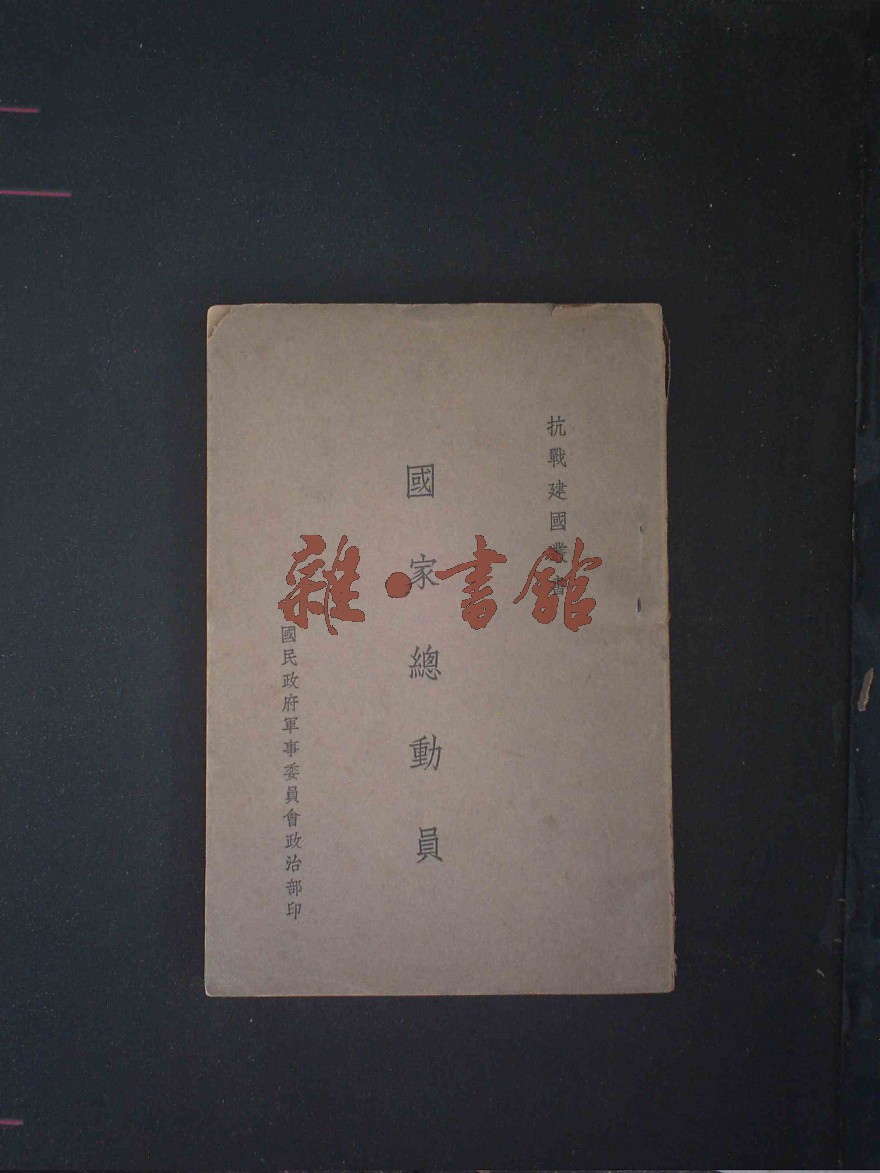 抗戰建國叢書
國家總動員
國民政府軍事委員會政治部印
雜·書館